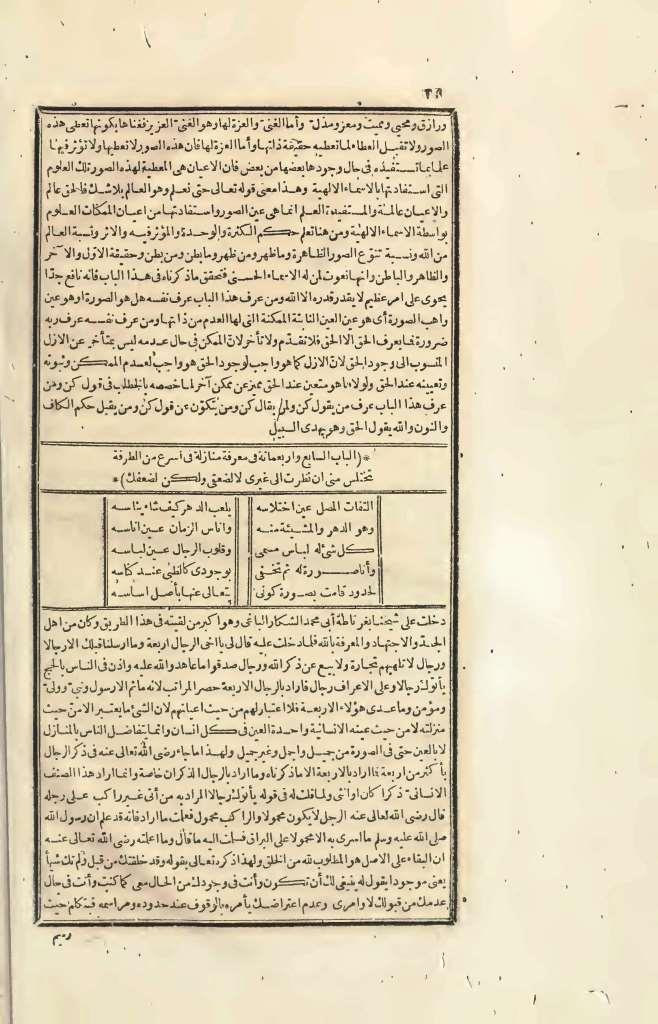 ورازق ومحيي ومميت ومعز ومذل وأما الغنى والعزة لها وهو الغنى العزيز فغناها بكونها تعطى هذه
الصور ولا تقبل العطاء لما تعطيه حقيقة ذاتها وأما العزة لها فان هذه الصور لا تعطيها ولا تؤثر فيها
علما بما تستفيده في حال وجودها بعضها من بعض فان الاعيان هى المعطية لهذه الصور تلك العلوم
التى استفادتها بالاسماء الالهية وهذا معنى قوله تعالى حتى نعلم وهو العالم بلا شك فالحق عالم
والاعيان عالمة والمستفيدة العلم انما هى عين الصور واستفادتها من اعيان الممكنات العلوم
بواسطة الاسماء الالهية ومن هنا تعلم حكم الكثرة والوحدة والمؤثر فيه والاثر ونسبة العالم
من الله ونسبة تنوع الصور الظاهرة وما ظهر ومن ظهر وما بطن ومن بطن وحقيقة الاول والآخر
والظاهر والباطن وانها نعوت لمن له الاسماء الحسنى فتحقق ما ذكرناه فى هذا الباب فانه نافع جدا
يحوى على امر عظيم لا يقدر قدره الا الله ومن عرف هذا الباب عرف نفسه هل هو الصورة او هو عين
واهب الصورة أى هو عين العين الثابتة الممكنة التى لها العدم من ذاتها ومن عرف نفسه عرف ربه
ضرورة فما يعرف الحق الا الحق فلا تقدم ولا تأخر لان الممكن فى حال عدمه ليس بمتأخر عن الازل
المنسوب الى وجود الحق لان الازل كما هو واجب لوجود الحق هو واجب لعدم الممكن وثبوته
وتعيينه عند الحق ولولا ما هو متعين عند الحق مميز عن ممكن آخر لما خصصه بالخطاب فى قول كن ومن
عرف هذا الباب عرف من يقول كن ولمن يقال كن ومن يتكون عن قول كن ومن يقبل حكم الكاف
والنون والله يقول الحق وهو يهدى السبيل
*(الباب السابع واربعمائة فى معرفة منازلة فى أسرع من الطرفة
تختلس منى ان نظرت الى غيرى لا لضعفى ولكن لضعفك)*
التفات المصل عين اختلاسه يلعب الدهر كيف شاء بناسه
وهو الدهر والمشيئة منه واناس الزمان عين اناسه
كل شئ له لباس مسمى وقلوب الرجال عين لباسه
وأنا صورة له ثم تخفى بوجودى كالظبى عند كناسه
لحدود قامت بصورة كونى يتعالى عنها بأصل اساسه
دخلت على شيخنا بغرناطة أبى محمد الشكار الباغى وهو أكبر من لقيته فى هذا الطريق وكان من اهل
الجد والاجتهاد والمعرفة بالله فلما دخلت عليه قال لى يا اخى الرجال اربعة وما ارسلنا قبلك الا رجالا
ورجال لا تلهيهم تجارة ولا بيع عن ذكر الله ورجال صدقوا ما عاهدوا الله عليه واذن فى الناس بالحج
يأتوك رجالا وعلى الاعراف رجال فاراد بالرجال الاربعة حصر المراتب لانه ما ثم الا رسول ونبى وولى
ومؤمن وما عدى هؤلاء الاربعة فلا اعتبار لهم من حيث اعيانهم لان الشئ ما يعتبر الا من حيث
منزلته لا من حيث عينه الانسانية واحدة العين فى كل انسان وانما يتفاضل الناس بالمنازل
لا بالعين حتى فى الصورة من جميل واجمل وغير جميل ولهذا ما جاء رضى الله تعالى عنه فى ذكر الرجال
بأكثر من اربعة فما اراد بالاربعة الا ما ذكرناه وما اراد بالرجال الذكران خاصة وانما اراد هذا الصنف
الانسانى ذكرا كان او انثى ولما قلت له فى قوله يأتوك رجالا المراد به من أتى غير راكب على رجله
قال رضى الله تعالى عنه الرجل لا يكون محمولا والراكب محمول فعلمت ما اراد فانه قد علم ان رسول الله
صلى الله عليه وسلم ما اسرى به الا محمولا على البراق فسلمت اليه ما قال وما اعلمته رضى الله تعالى عنه
ان البقاء على الاصل هو المطلوب لله من الخلق ولهذا ذكره تعالى بقوله وقد خلقتك من قبل ولم تك شيأ
يعنى موجودا يقول له ينبغى لك أن تكون وأنت فى وجودك من الحال معى كما كنت وأنت فى حال
عدمك من قبولك لاوامرى وعدم اعتراضك يأمره بالوقوف عند حدوده ومراسمه فيتكلم حيث
رسم